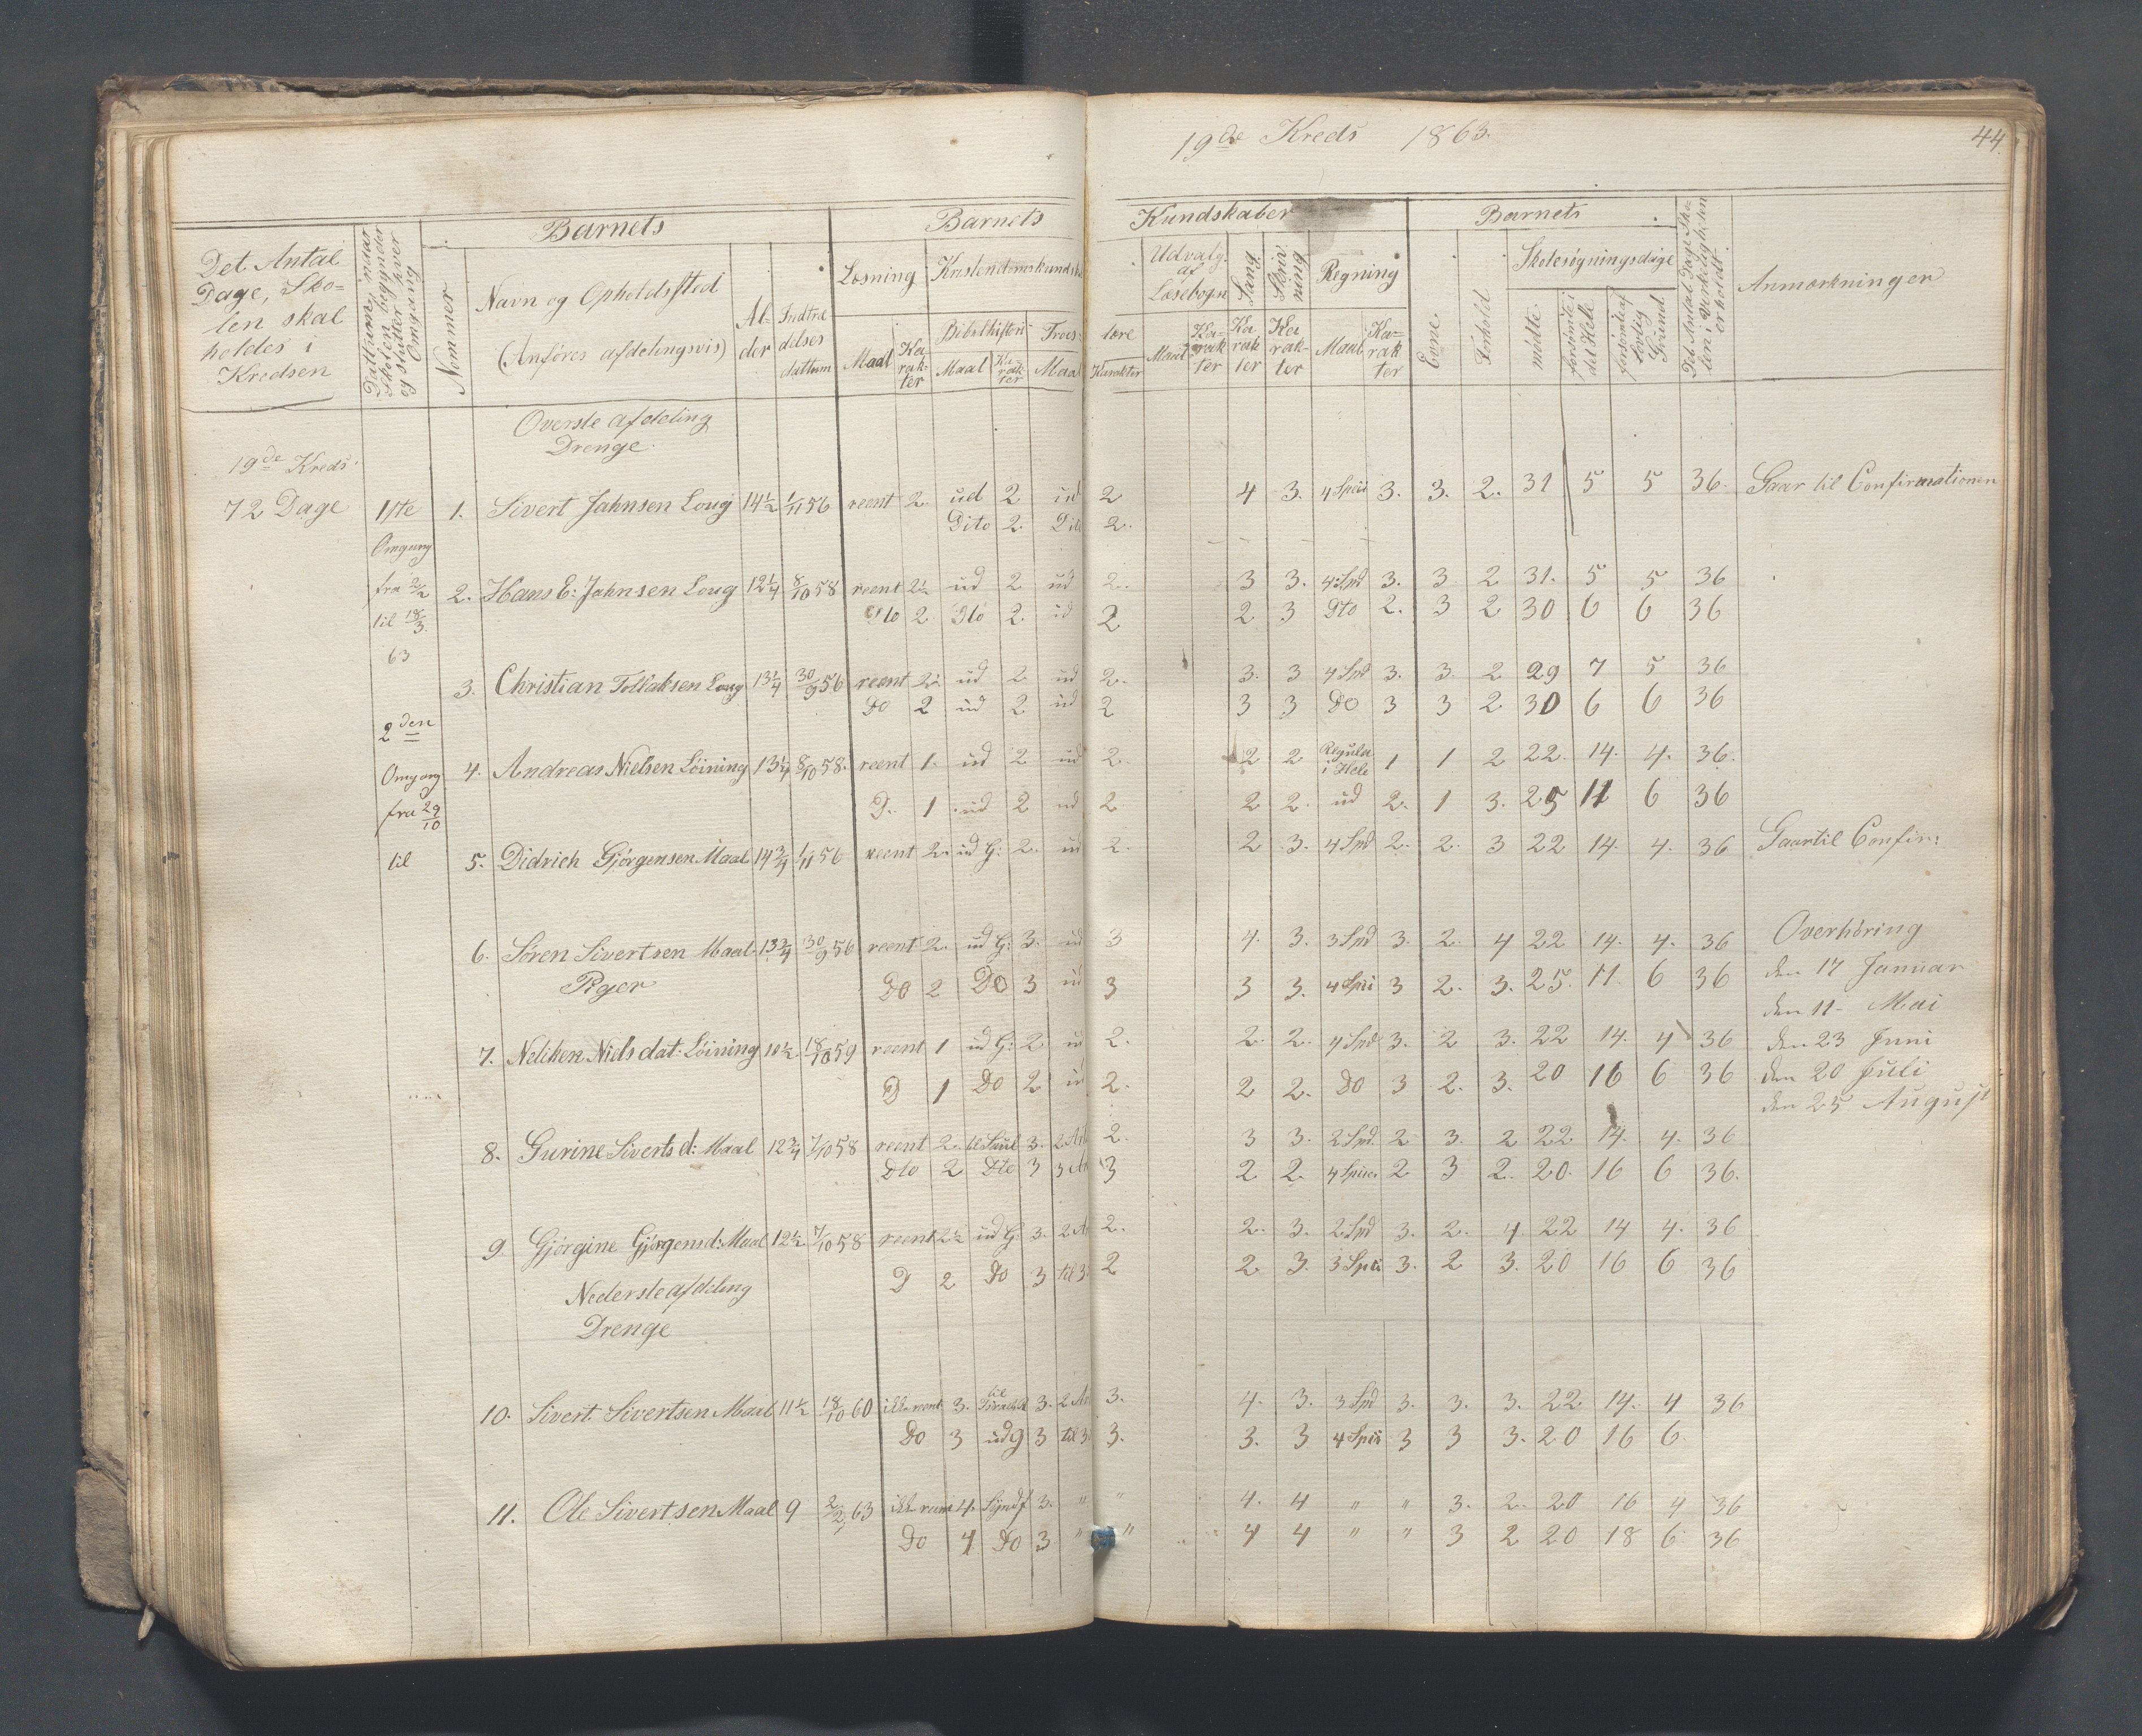 19de Kreds 1863.
44
Barnets
Barnets
Kundskaber
Barnets
Det Antal Dage, Skolen skal holdes i Kredsen
Dattum, naar Skolen begynder og slutter hver Omgang
Nommer
Navn og Opholdssted
(Anføres afdelingsvis)
Alder
Indtrædelses dattum
Læsning
Maal
Karakter
Bibelhistori
Maal
Karakter
Troes-
Maal
lære
Karakter
Udvalg. af Læsebogn
Maal
Karakter
Sang.
Karakter
Skrivning
Karakter
Regning
Maal
Karakter
Evne.
Forhold
Skolesøgningsdage
mødte
forsømte i det Hele
forsømte af lovlig Grund
Det Antal Dage Skolen i Virkeligheten er holdt.
Anmærkninger
Overste afdeling
Drenge
19de Kreds.
72 Dage
1ste 1. Sivert Jahnsen Loug 14½ 1/11 56 reent 2. ud 2 ud 2 4 3. 4 Spei 3. 3. 2. 31 5 5 36. Gaar til Confirmationen
Dito 2. Dito 2.
Omgang
fra 2/2 2. Hans E: Jahnsen Loug 12¼ 8/10 58 reent 2½ ud 2 ud 2. 3 3. 4 Spd 3. 3 2 31. 5 5 36
til 18/3. Dto 2 Dto 2. ud 2 2 3 Dto 2. 3 2 30 6 6 36
63
3. Christian Tollaksen Loug 13¼ 30/9 56 reent 2½ ud 2 ud 2. 3. 3 4 Spd 3. 3. 2 29 7 5 36
Do 2 ud 2 ud 2 3 3 Do 3 3 2 30 6 6 36
2den
Omgang 4. Andreas Nielsen Löining 13¼ 8/10 58. reent 1. ud 2 ud 2. 2 2 Regula i Hele 1 1 2 22. 14. 4. 36.
fra 29/10 D. 1 ud 2 ud 2 2 2. ud 2. 1 3. 25 11 6 36
til 5. Didrich Gjörgensen Maal 14¾ 1/11 56 reent 2. ud G: 2. ud 2. 2 3. 4 Spd 2. 2. 3 22 14. 4. 36 Gaar til Confir:
6. Sören Sivertsen Maal 13¾ 30/9 56 reent 2. ud G: 3. ud 3 4. 3. 3 Spd 3. 2. 4 22 14. 4. 36 Overhöring
Piger Do 2 Do 3 ud 3 3 3. 4 Spei 3 2. 3. 25. 11. 6 36 den 17 Januar
den 11- Mai
7. Neliken Niels dat: Löining 10½ 18/10 59 reent 1 ud G: 2 ud 2. 2. 2. 4 Spd 3. 2 3. 22 14. 4 36 den 23 Juni
D 1 Do 2 ud 2. 2 2. Do 3 2. 3. 20 16 6 36 den 20 Juli
den 25 August
8. Gurine Siverts d: Maal 12¾ 7/10 58 reent 2. til Saul 3. 2 Ar 2. 3 3. 2 Spd. 2 3. 2 22 14. 4. 36
Dto 2 Dto 3 3 Ar 3 2 2. 4 Spei 2 3 2. 20. 16 6 36.
9 Gjörgine Gjörgensd: Maal 12½ 7/10 58 reent 2½ ud G: 3. 2 A 2. 2. 3. 2 Spd 3. 2. 4 22 14 4. 36
D 2 Do 3 til 3. 2 2 3. 3 Spei 3. 2 3. 20 16 6 36
Nederste afdeling
Drenge
10. Sivert Sivertsen Maal 11½ 18/10 60 ikke reent 3. 3. 2 Ar 3. 4. 3. 3 Spd 3. 3. 3. 22 14. 4 36
Do 3 ud g 3 til 3. 3. 3. 3 4 Spei 3 3 3. 20 16 6
11. Ole Sivertsen Maal 9 2/2 63 4. Syndf 3. " " 4. 4 " " 3. 2. 20 16 4 36
Do 4 Do 3 " " 4 4 " " 3 2 20 18 6 36